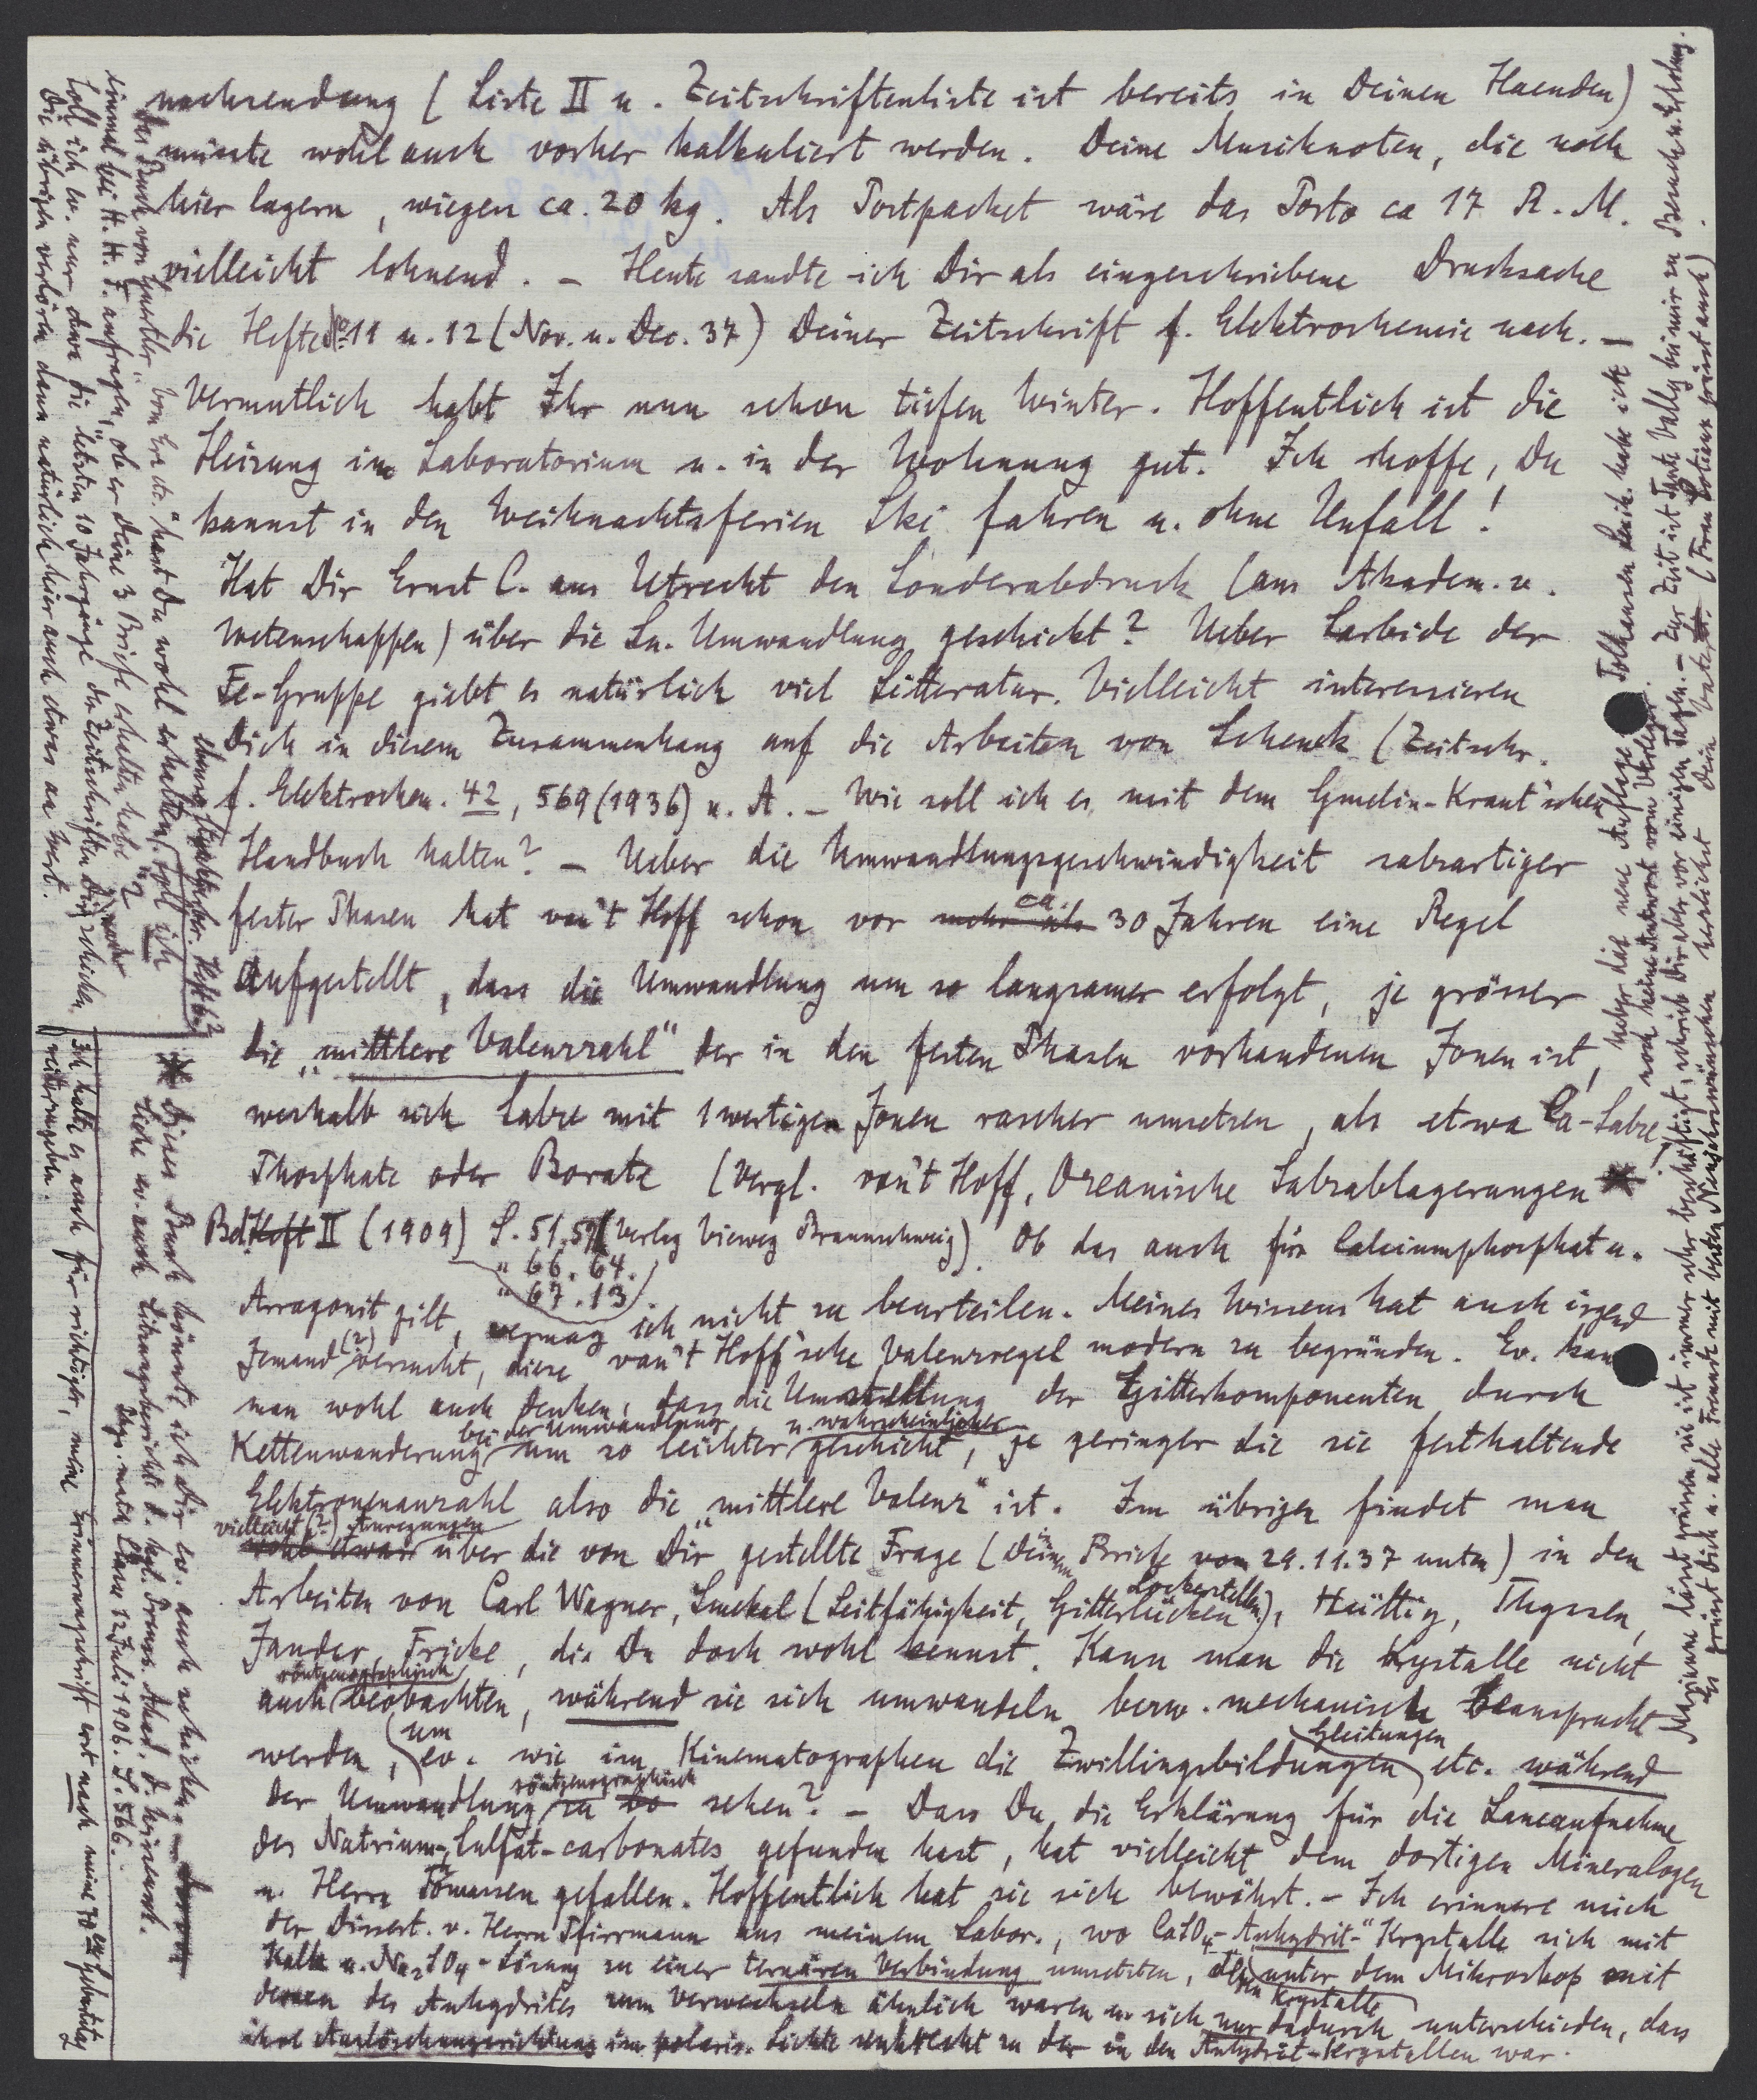 nachsendung (Liste II u. Zeitschriftenliste ist bereits in Deinen Haenden)
müsste wohl auch vorher kalkuliert werden. Deine Musiknoten, die noch
hier lagern, wiegen ca. 20 kg. Als Postpacket wäre das Porto ca 17 R.M.
vielleicht lohnend. – Heute sandte ich Dir als eingeschriebene Drucksache
die Hefte № 11 u. 12 (Nov. u. Dec. 37) Deiner Zeitschrift f. Elektrochemie nach. –
Vermutlich habt Ihr nun schon tiefen Winter. Hoffentlich ist die
Heizung im Laboratorium u. in der Wohnung gut. Ich hoffe, Du
kannst in den Weihnachtsferien Ski fahren u. ohne Unfall!
Hat Dir Ernst C. aus Utrecht den Sonderabdruck (aus Akadem. v.
Wetenschappen) über die Sn. Umwandlung geschickt? Ueber Carbide der
Fe-Gruppe giebt es natürlich viel Litteratur. Vielleicht interessieren
Dich in diesem Zusammenhang auf die Arbeiten von Schenck (Zeitschr.
f. Elektrochem. 42, 569 (1936) u. A. – Wie soll ich es mit dem Gmelin-Kraut'schen
Handbuch halten? – Ueber die Umwandlungsgeschwindigkeit salzartiger
fester Phasen hat van't Hoff schon vor mehr als ca. 30 Jahren eine Regel
Aufgestellt, dass die Umwandlung um so langsamer erfolgt, je grösser
die „mittlere Valenzzahl" der in den festen Phasen vorhandenen Jonen ist,
weshalb sich Salze mit 1wertigen Jonen rascher umsetzen, als etwa Ca-Salze,
Phosphate oder Borate (Vergl. van't Hoff, Ozeanische Salzablagerungen *
Bd. Heft II (1909) S. 51.59 (Verlag Vieweg Braunschweig). Ob das auch für Calciumphosphat u.
" 66. 64.
" 67. 13.
Arragonit gilt, vermag ich nicht zu beurteilen. Meines Wissens hat auch irgend
Jemand (?) versucht, diese van't Hoff'sche Valenzregel modern zu begründen. Ev. kann
man wohl auch denken, dass die Umstellung der Gitterkomponenten durch
Kettenwanderung bei der Umwandlung um so leichter u. wahrscheinlicher geschieht, je geringer die sie festhaltende
Elektronenanzahl also die „mittlere Valenz" ist. Im übrigen findet man
vielleicht (?) Anregungen
wohl etwas über die von Dir gestellte Frage (Deinem Briefe vom 29.11.37 unten) in den
Arbeiten von Carl Wagner, Smekal (Leitfähigkeit, Gitterlücken Lockerstellen), Hüttig, Thyssen,
Jander, Fricke, die Du doch wohl kennst. Kann man die Krystalle nicht
auch röntgenographisch beobachten, während sie sich umwandeln bezw. mechanisch beansprucht
werden, um ev. wie im Kinematographen die Zwillingsbildungen Gleitungen etc. während
der Umwandlung röntgenographisch zu sehen? – Dass Du die Erklärung für die Laueaufnahme
des Natrium-Sulfat-carbonates gefunden hast, hat vielleicht dem dortigen Mineralogen
u. Herrn gefallen. Hoffentlich hat sie sich bewährt. – Ich erinnere mich
der Dissert. v. Herrn Pfirrmann aus meinem Labor., wo CaSO4-„Anhydrit-" Krystalle sich mit
Kalk u. Na2SO4-Lösung zu einer ternären Verbindung umsetzten, deren Krystalle unter dem Mikroskop mit
denen des Anhydrites zum Verwechseln ähnlich waren u. sich nur dadurch unterschieden, dass
ihre Auslöschungsrichtung im polaris. Lichte senkrecht zu der in den Anhydrit-Krystallen war.
Das Buch von
einmal bei H. H. F. anfragen, ob er Deine 3 Briefe erhalten habe?
Soll ich ev. nur etwa die „letzten" 10 Jahrgänge der Zeitschriften Dir schicken
Die übrigen verlören dann natürlich hier auch etwas an Wert.
* Dieses Buch könnte ich Dir ev. auch schicken
Siehe ev. auch Sitzungsberichte d. kgl. Preuss. Akad. d. Wissensch.
Phys. math. Classe 12 Juli 1906. S. 566.
Ich halte es auch für richtiger, meine Erinnerungsschrift erst nach meine 70en Geburtstag
weiterzugeben.
Ueber die neue Auflage
noch keine Antwort vom Verleger.
Marianne lässt grüssen, sie ist immer sehr beschäftigt, schrieb Dir aber vor einigen Tagen. – Zur Zeit ist Tante Vally bei mir zu Besuch u. Erholung.
Es grüsst Dich u. alle Freunde mit besten Neujahrswünschen herzlichst Dein Vater.